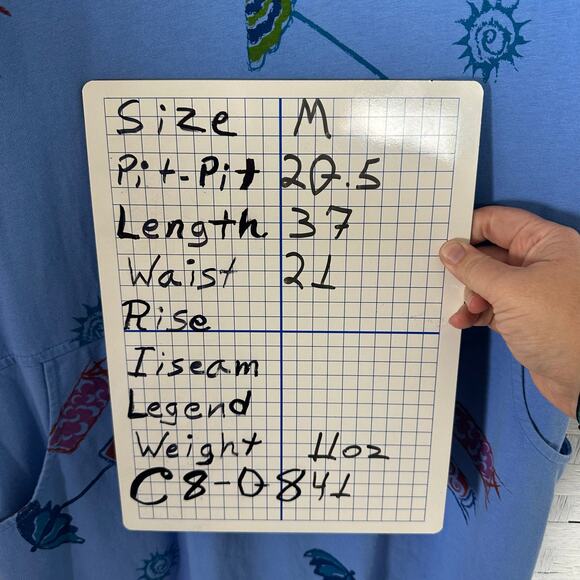 Size M
Pit-Pit 20.5
Length 37
Waist 21
Rise
Iiseam
Legend
Weight 11oz
C8-0841